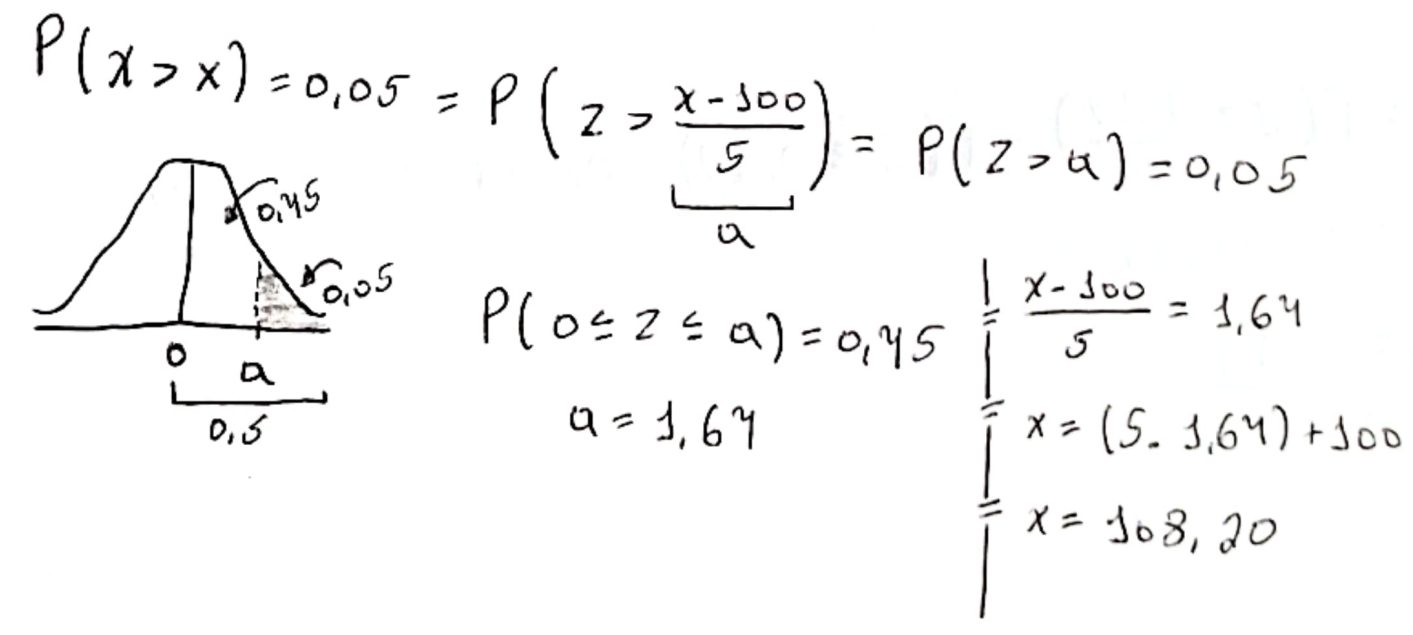 P(x > x) = 0,05 = P(z > (x - 100)/5) = P(z > a) = 0,05
a
0,45
0,05
0 a
0,5
P(0 ≤ z ≤ a) = 0,45
a = 1,64
(x - 100)/5 = 1,64
x = (5. 1,64) + 100
x = 108, 20